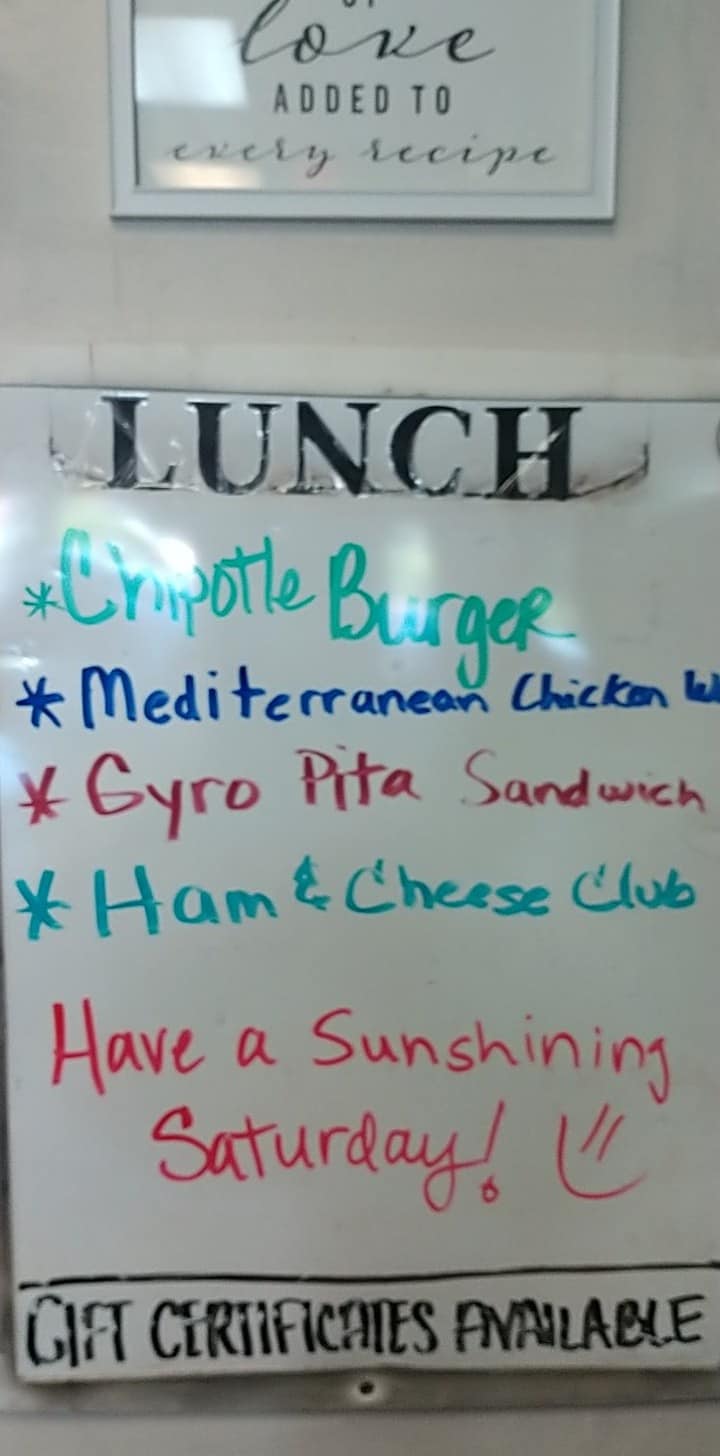 love
ADDED TO
every recipe
LUNCH
*Chipotle Burger
* Mediterranean Chicken
* Gyro Pita Sandwich
* Ham & Cheese Club
Have a Sunshining
Saturday!
GIFT CERTIFICATES AVAILABLE